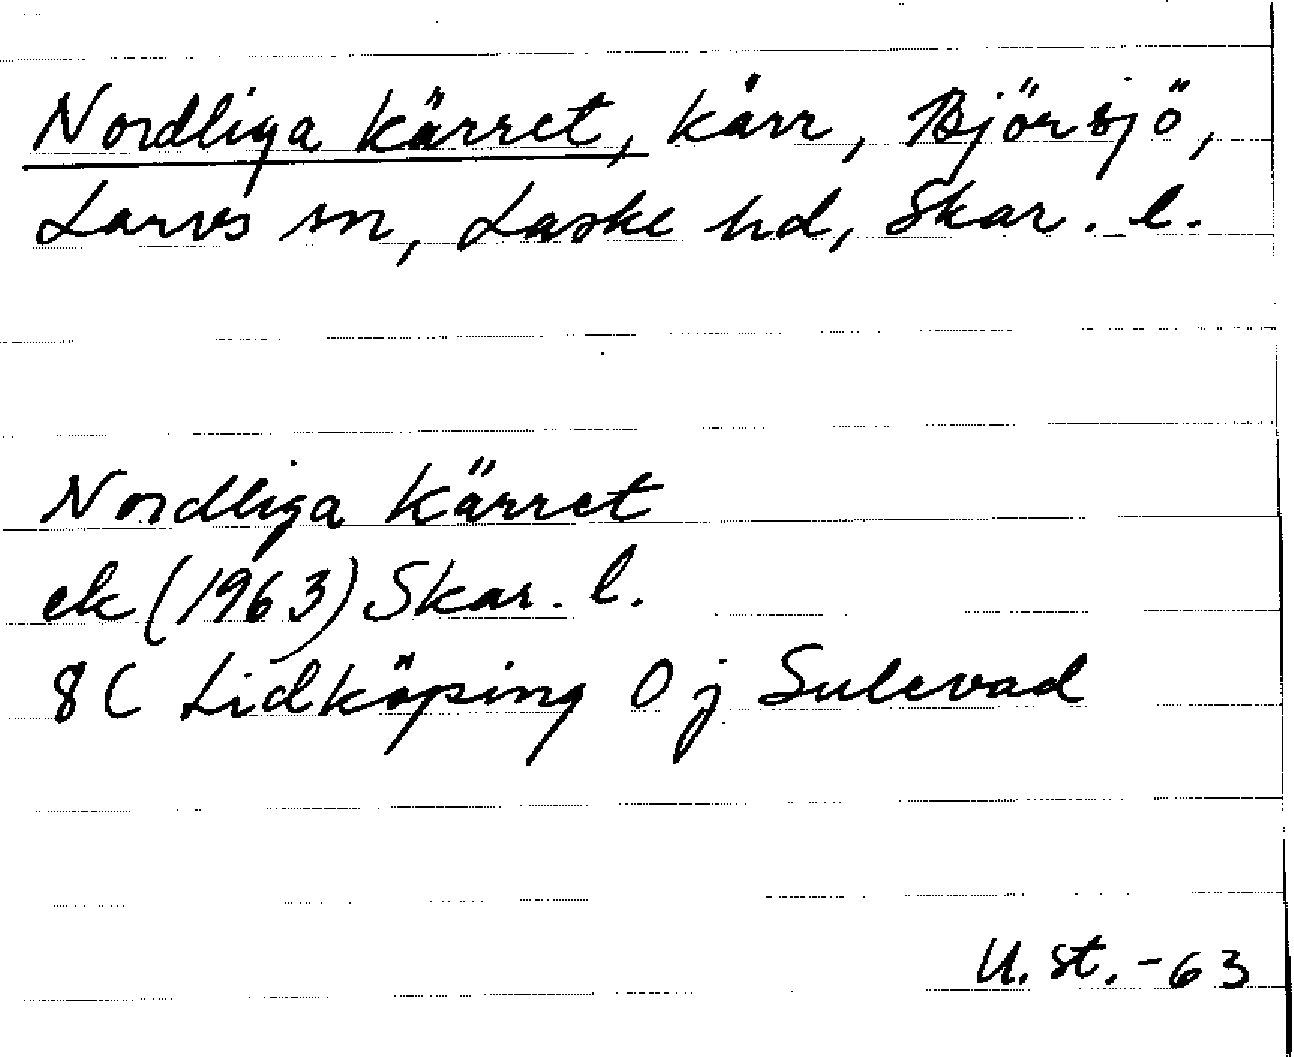 Nordliga kärret, kärr, Björsjö,
Larvs sn, Laske hd, Skar. l.
Nordliga Kärret
ek (1963) Skar. l.
8C Lidköping 0 j Sulevad
U. st. -63